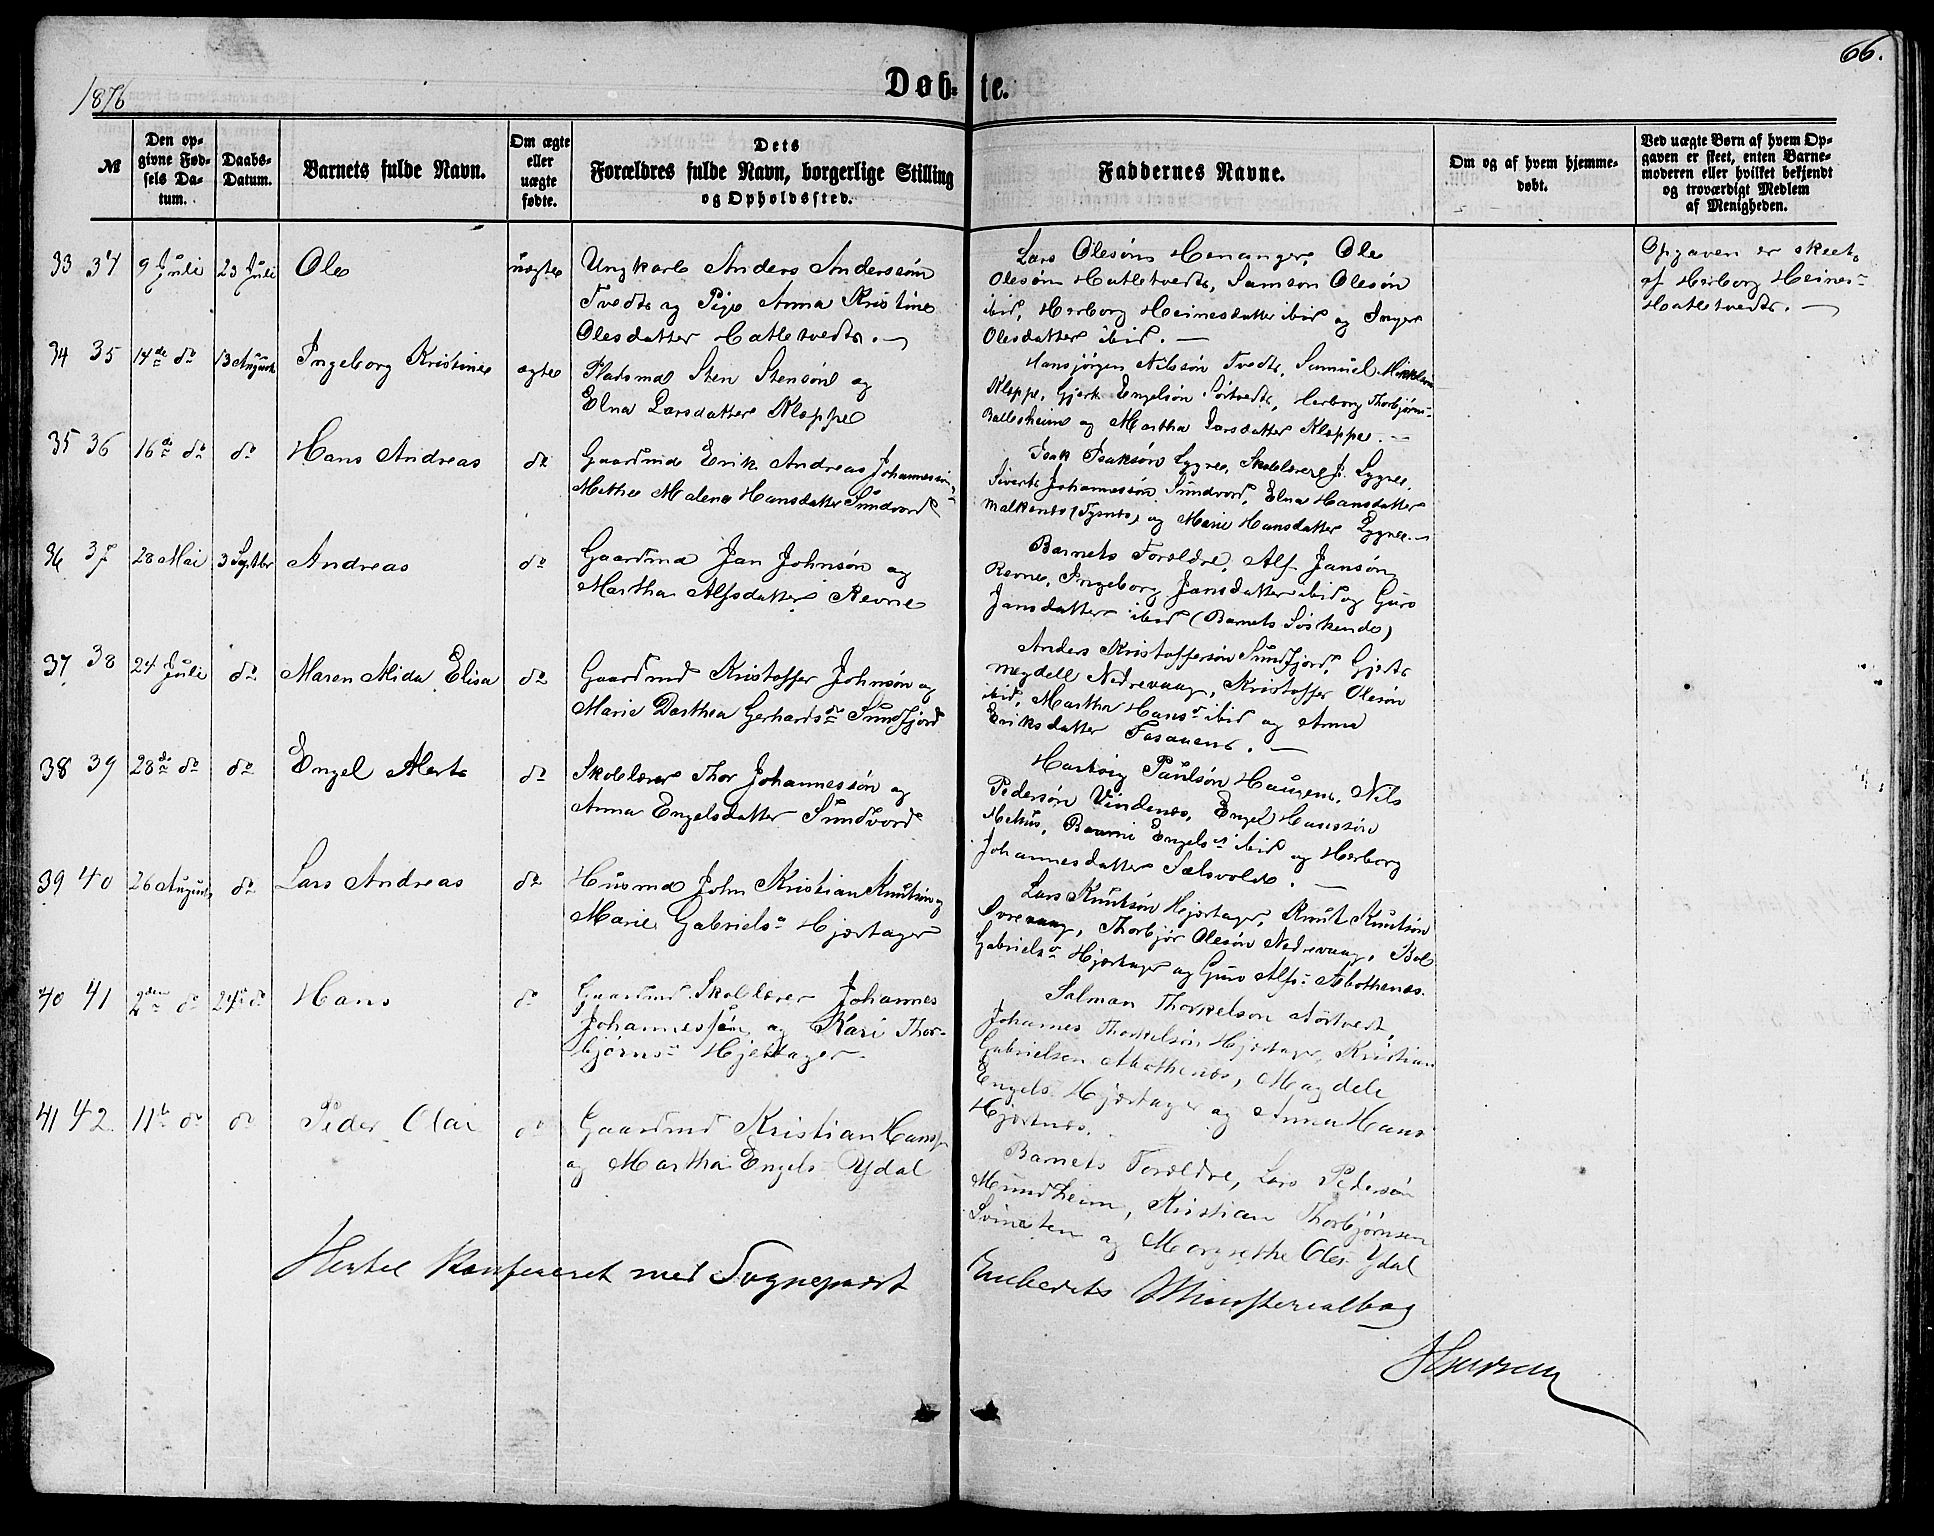 1876
Døb- te.
66.
№
Den op-
givne Fød-
sels Da-
tum.
Daabs-
Datum.
Barnets fulde Navn.
Om ægte
eller
uægte
fødte.
Dets
Forældres fulde Navn, borgerlige Stilling
og Opholdssted.
Faddernes Navne.
Om og af hvem hjemme-
døbt.
Ved uægte Børn af hvem Op-
gaven er skeet, enten Barne-
moderen eller hvilket bekjendt
og troværdigt Medlem
af Menigheden.
33 34 9 Juli 23 Juli Ole uægte
Ungkarl Anders Anderssøn
Tvedt og Pige Anna Kristine
Olesdatter Hatletvedt.
Lars Olesøn Henanger, Ole
Olesøn Hatletvedt, Samson Olesøn
ibid, Herborg Heinesdatter ibid og Inger
Olesdatter ibid.
Opgaven er skeet
af Herborg Heines-
Hatletvedt.
34 35 14de do 13 August Ingeborg Kristine ægte
Pladsmd Sten Stensøn og
Elna Larsdatter Kleppe
Hansjørgen Nilssøn Tvedt, Samuel
Kleppe, Gjert Engelsøn Sørtvedt, Herborg Thorbjørns-
Ballesheim og Martha Larsdatter Kleppe.
35 36 16de do do Hans Andreas do
Gaardmd Erik Andreas Johannessøn
Methe Malena Hansdatter Sundvord
Isak Isaksøn Lygre, Skolelærer J. Lygre,
Sivert Johannessøn Sundvord, Elna Hansdatter
Malkenes (Tysnes) og Marie Hansdatter Lygre.
36 37 28 Mai 3 Septbr Andreas do
Gaardmd Jan Johnsøn og
Martha Alfsdatter Revne
Barnets Forældre, Alf Jansøn
Revne, Ingeborg Jansdatter ibid og Guro
Jansdatter ibid (Barnets Søskende)
37 38 24 Juli do Maren Alida Elisa do
Gaardmd Kristoffer Johnsøn og
Marie Dorthea Gerhardsdr Sundfjord
Anders Kristoffersøn Sundfjord, Gjert
Meydell Nedrevaag, Kristoffer Olesøn
ibid, Martha Hansdr ibid og Anna
Eriksdatter Tosanen.
38 39 28de do do Engel Alert do
Skolelærer Thor Johannessøn og
Anna Engelsdatter Sundvord
Hartvig Paulsøn Haugen, Nils
Pedersøn Vindenes, Engel Hanssøn
Mehus, Engelsdr ibid og Herborg
Johannesdatter Sælsvold.
39 40 26 August do Lars Andreas do
Husmd John Kristian Knutsøn og
Marie Gabriels Hjertager
Lars Knutsøn Hjertager, Knut Knutsøn
Øvrevaag, Thorbjør Olesøn Nedrevaag, Bol
Gabrielsdr Hjertager og Guro Alfs Abothenes.
40 41 2den do 24de do Hans do
Gaardmd Skolelærer Johannes
Johannessøn og Kari Thor-
bjørns Hjertager
Salman Thorkelson Sørtvedt,
Johannes Thorkelsøn Hjertager, Kristian
Gabrielsen Abothenes, Magdele
Engels Hjertager og Anna Hans
Hjertnes.
41 42 11te do do Peder Olai do
Gaardmd Kristian Hanss
og Martha Engels Ydal
Barnets Forældre, Lars Pedersøn
Mundheim, Kristian Thorbjørnsen
og Margrethe Oles Ydal
Hertil konfereret med Sognepræst
Embedets Ministerialbog